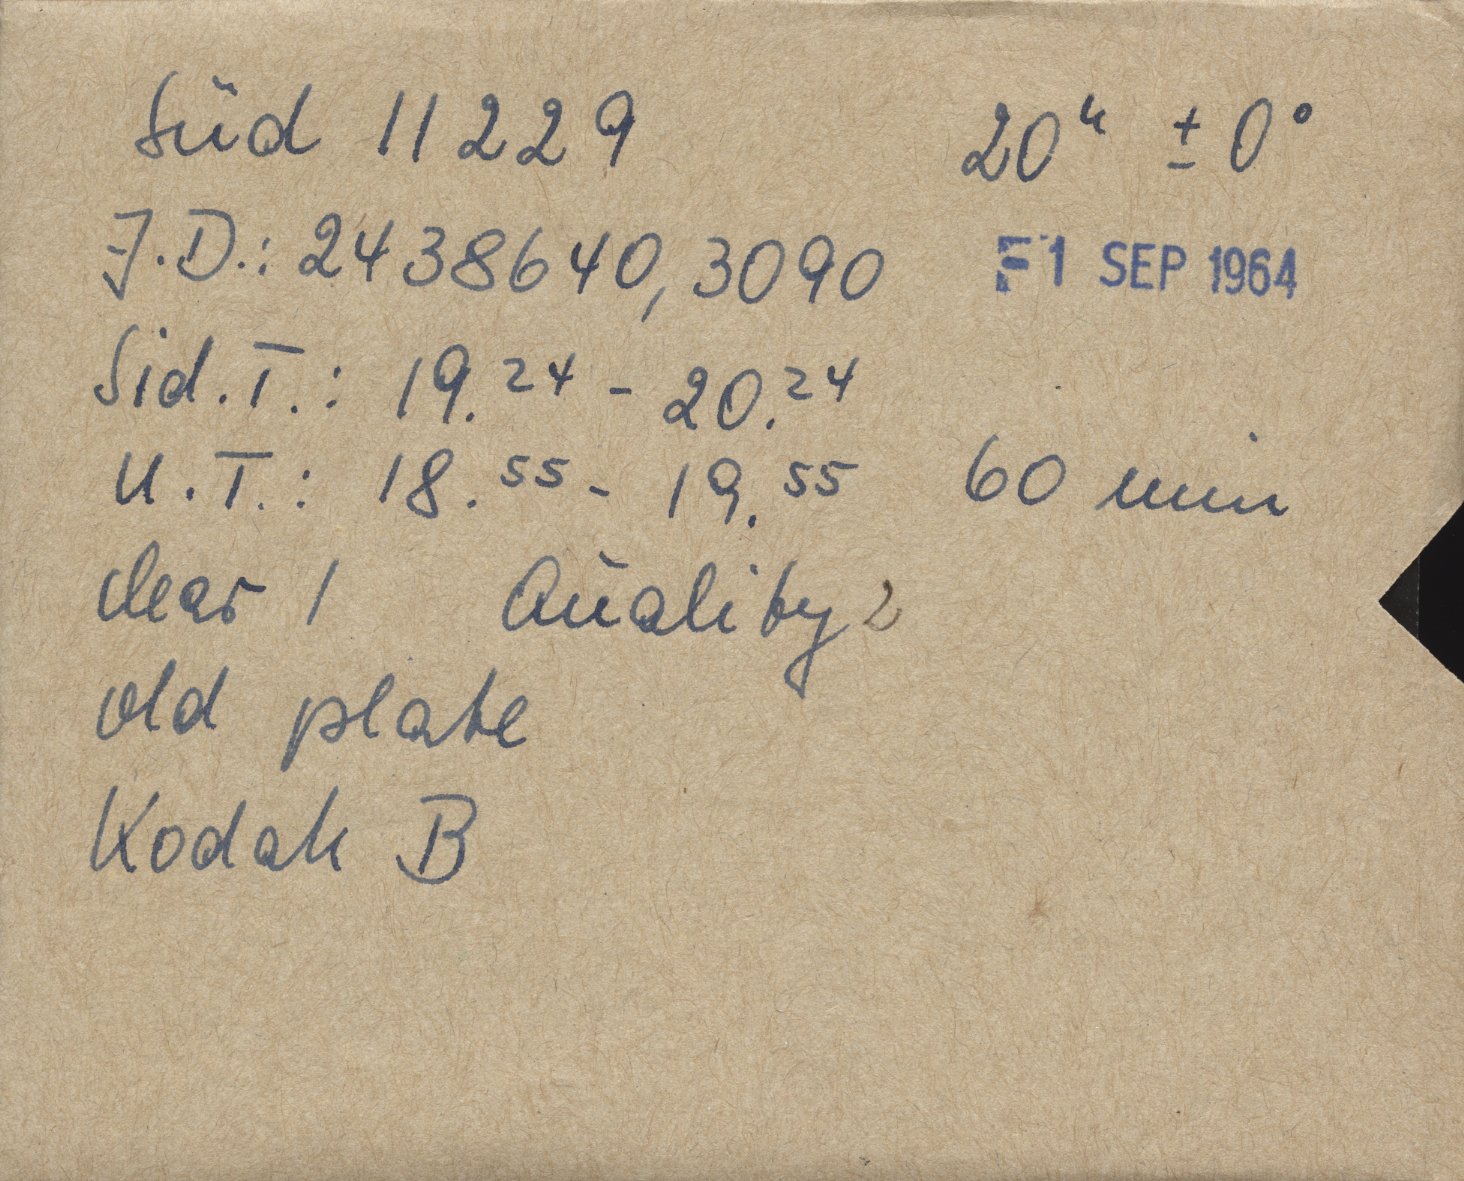 Süd 11229 20ʰ ± 0°
J.D.: 2438640,3090 -1 SEP 1964
Sid.T.: 19.²⁴ - 20.²⁴
U.T.: 18.⁵⁵ - 19.⁵⁵ 60 min
clear 1 Quality 2
old plate
Kodak B